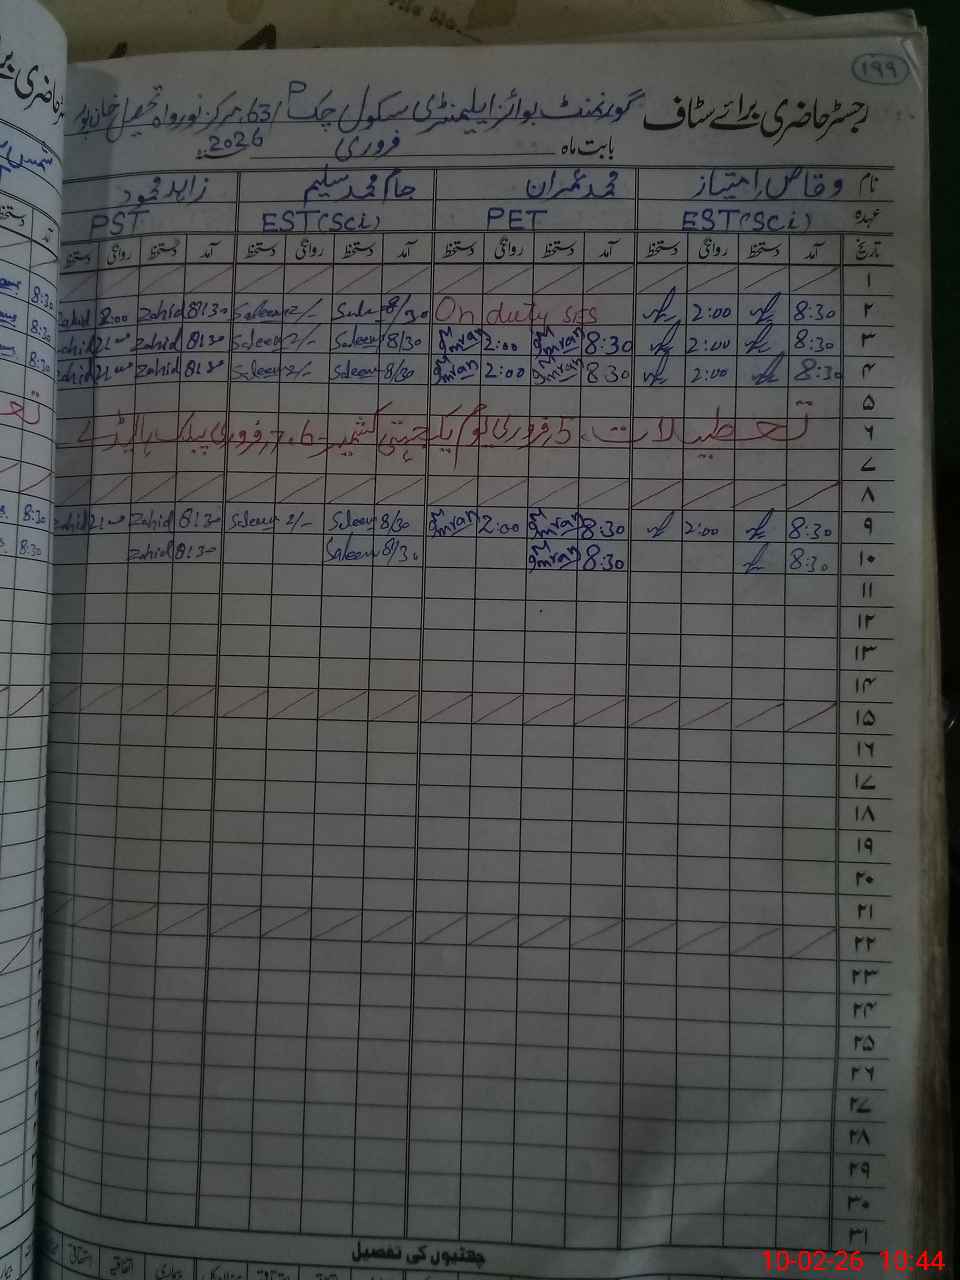 ۱۹۹
رجسٹر حاضری برائے سٹاف گورنمنٹ بوائز ایلیمنٹری سکول چک 63/P مرکز نور واہ تحصیل خان پور
بابت ماہ فروری 2026
نام وقاص امتیاز محمد عمران جام محمد سلیم زاہد محمود
عہدہ EST(Sci) PET EST(Sci) PST
تاریخ آمد دستخط روانگی دستخط آمد دستخط روانگی دستخط آمد دستخط روانگی دستخط آمد دستخط روانگی دستخط
۱
۲ 8:30 2:00 On duty SES 8/30 Saleem 2/- Saleem 8:30 Zahid 2:00 Zahid
۳ 8:30 2:00 8:30 Imran 2:00 Imran 8/30 Saleem 2/- Saleem 8:30 Zahid 2:00 Zahid
۴ 8:30 2:00 8:30 Imran 2:00 Imran 8/30 Saleem 2/- Saleem 8:30 Zahid 2:00 Zahid
۵
۶ تعطیلات 5 فروری یوم یکجہتی کشمیر 6، 7 فروری پبلک ہالیڈے
۷
۸
۹ 8:30 2:00 8:30 Imran 2:00 Imran 8/30 Saleem 2/- Saleem 8:30 Zahid 2:00 Zahid
۱۰ 8:30 8:30 Imran 8/30 Saleem 8:30 Zahid
۱۱
۱۲
۱۳
۱۴
۱۵
۱۶
۱۷
۱۸
۱۹
۲۰
۲۱
۲۲
۲۳
۲۴
۲۵
۲۶
۲۷
۲۸
۲۹
۳۰
۳۱
چھٹیوں کی تفصیل
10-02-26 10:44